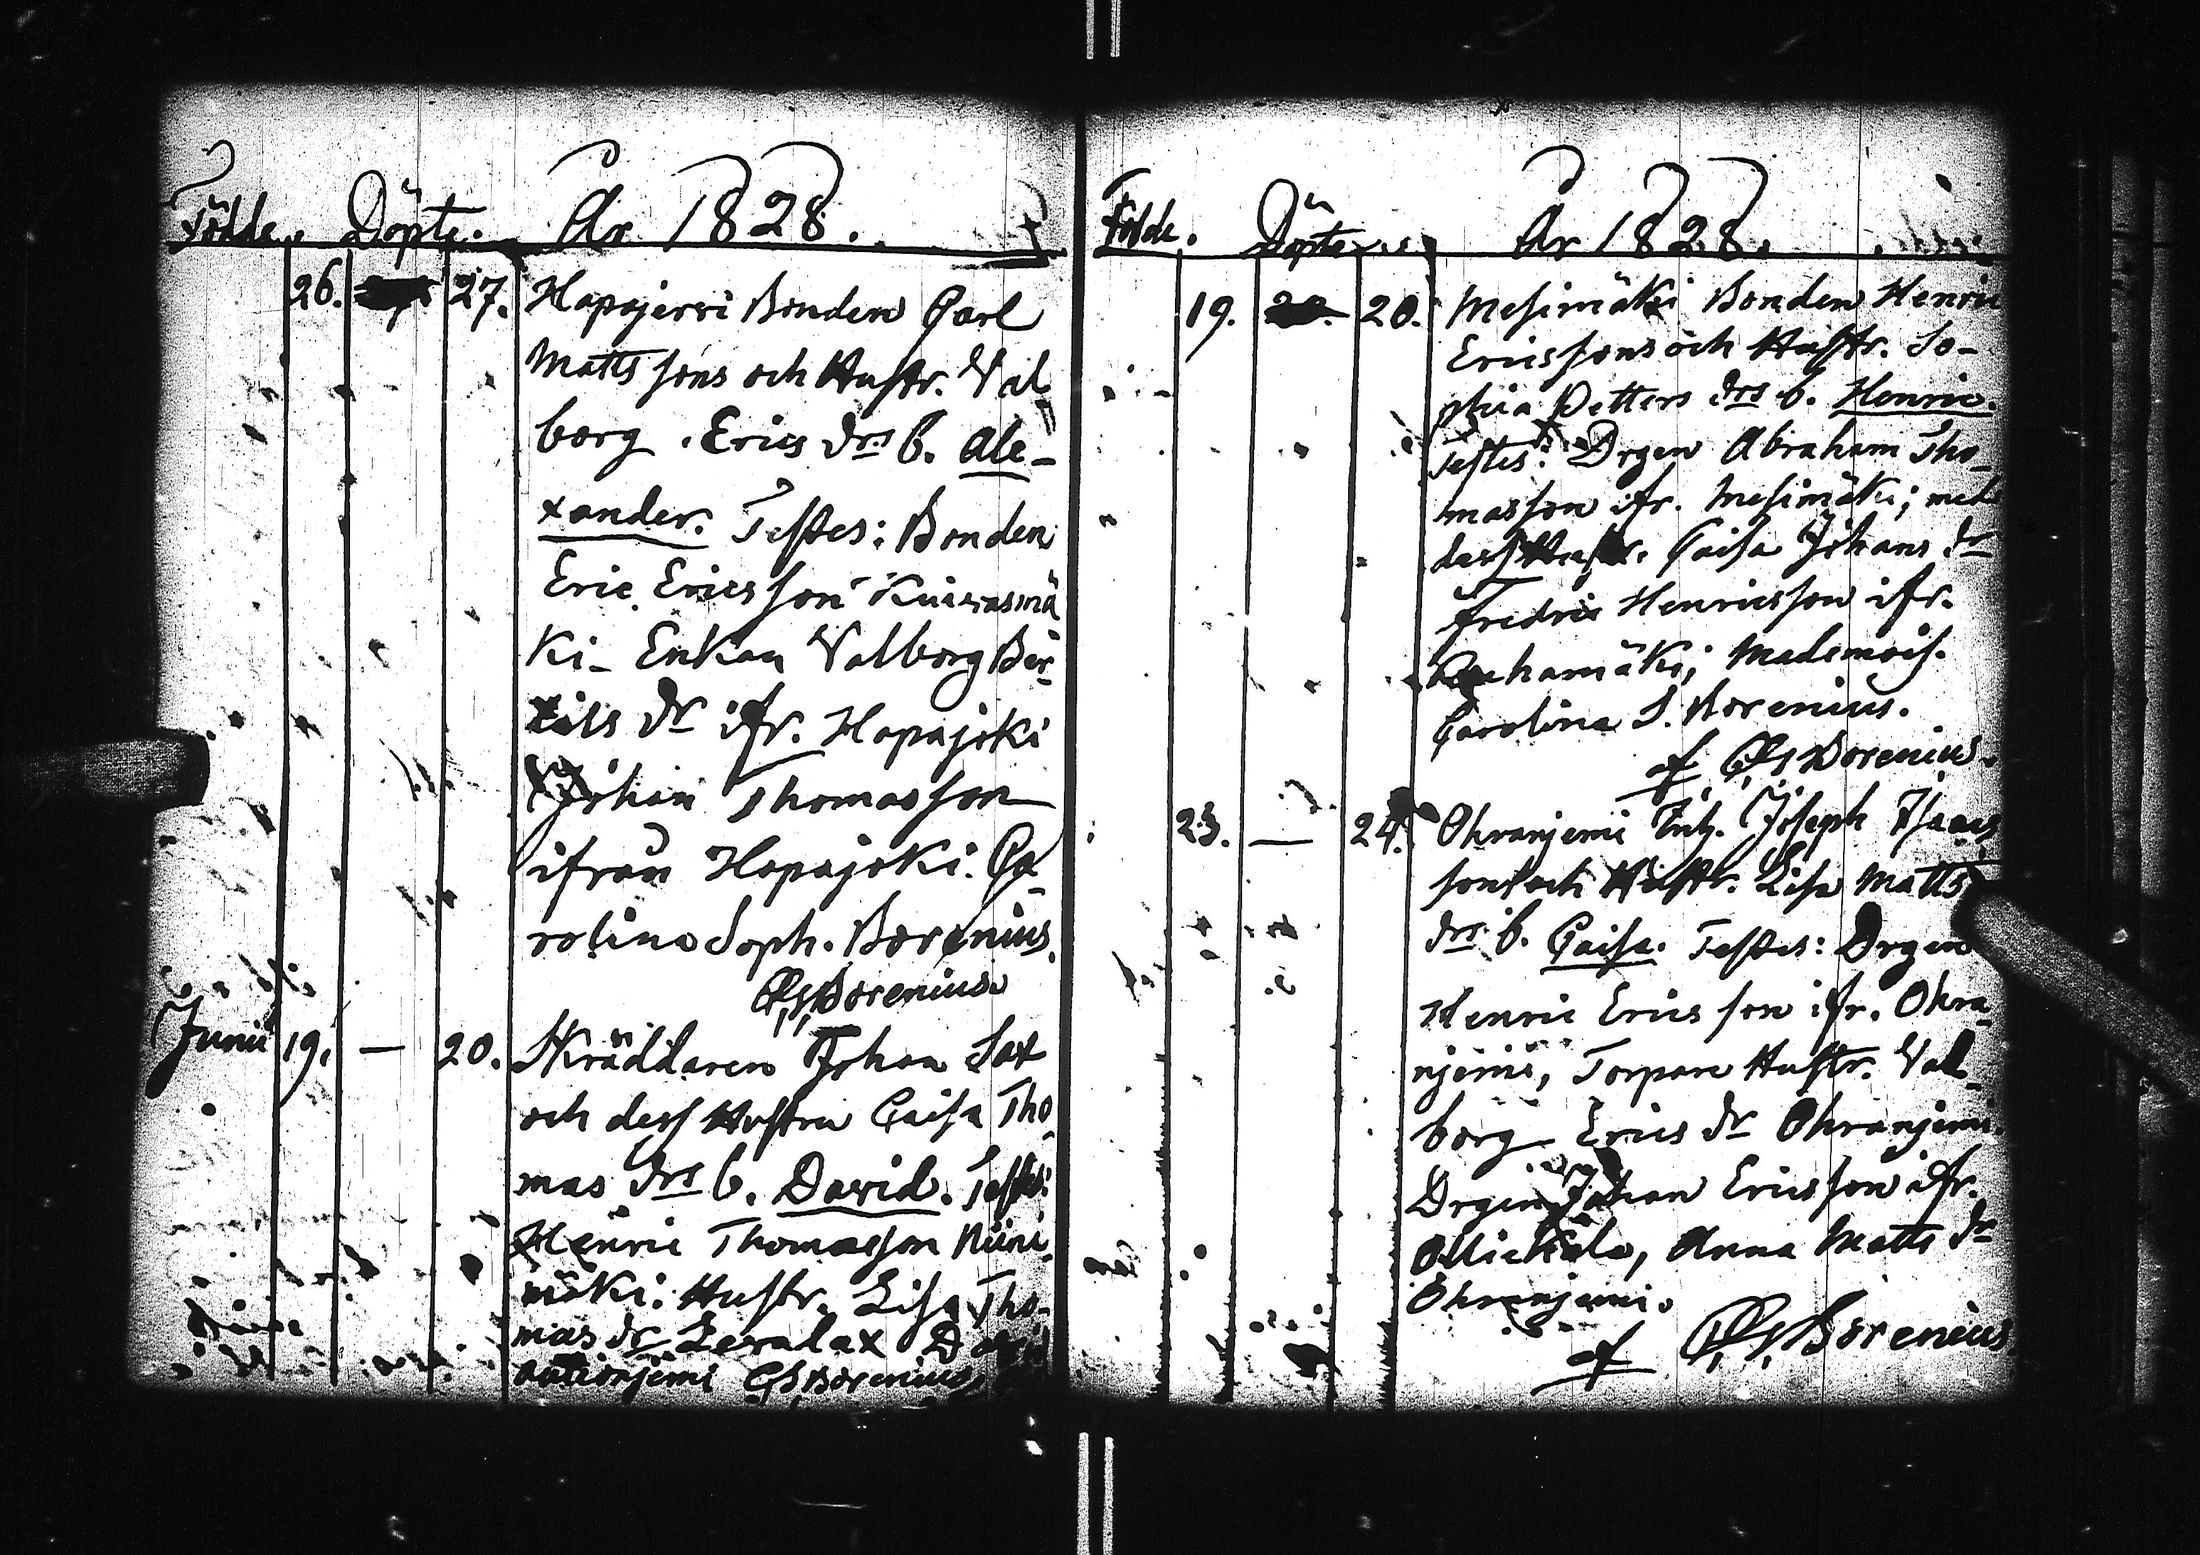 Födde. Döpte. År 1828.
26. 27. Hapajerwi Bonden Carl
Matts sons och Hustr. Val
borg Erics drs b. Ale-
xander. Testes: Bonden
Eric Ericsson
ki- Enkan Valborg Ber-
tils dr ifr. Hapajoki
Johan Thomasson
ifrån Hapajoki. Ca-
rolina Soph. Borenius.
Borenius
Junii 19. — 20. Skräddaren Johan Sax
och dess Hustru Caisa Tho
mas drs b. David. Testes:
Henric Thomasson Niini
mäki: Hustr. Lisa Tho-
mas dr
Borenius
Födde. Döpte År 1828.
19. 20. Mesimäki Bonden Henric
Ericssons och Hustr. So-
phia Petters drs b. Henric.
Testes: Drgen Abraham Tho-
masson ifr. Mesimäki; med
dess Hustr. Caisa Johans dr
Fredric Henricsson ifr.
Mademois.
Carolina S. Borenius.
af Borenius.
23. — 24. Ohranjemi Inh. Joseph Isaacs
sons och Hustr. Lisa Matts
drs b. Caisa. Testes: Drgen
Henric Ericsson ifr. Ohra-
njemi, Torpare Hustr. Val-
borg Erics dr Ohranjemi.
Drgen Johan Ericsson ifr.
Ollickala, Anna Matts dr
Ohranjemi.
af Borenius